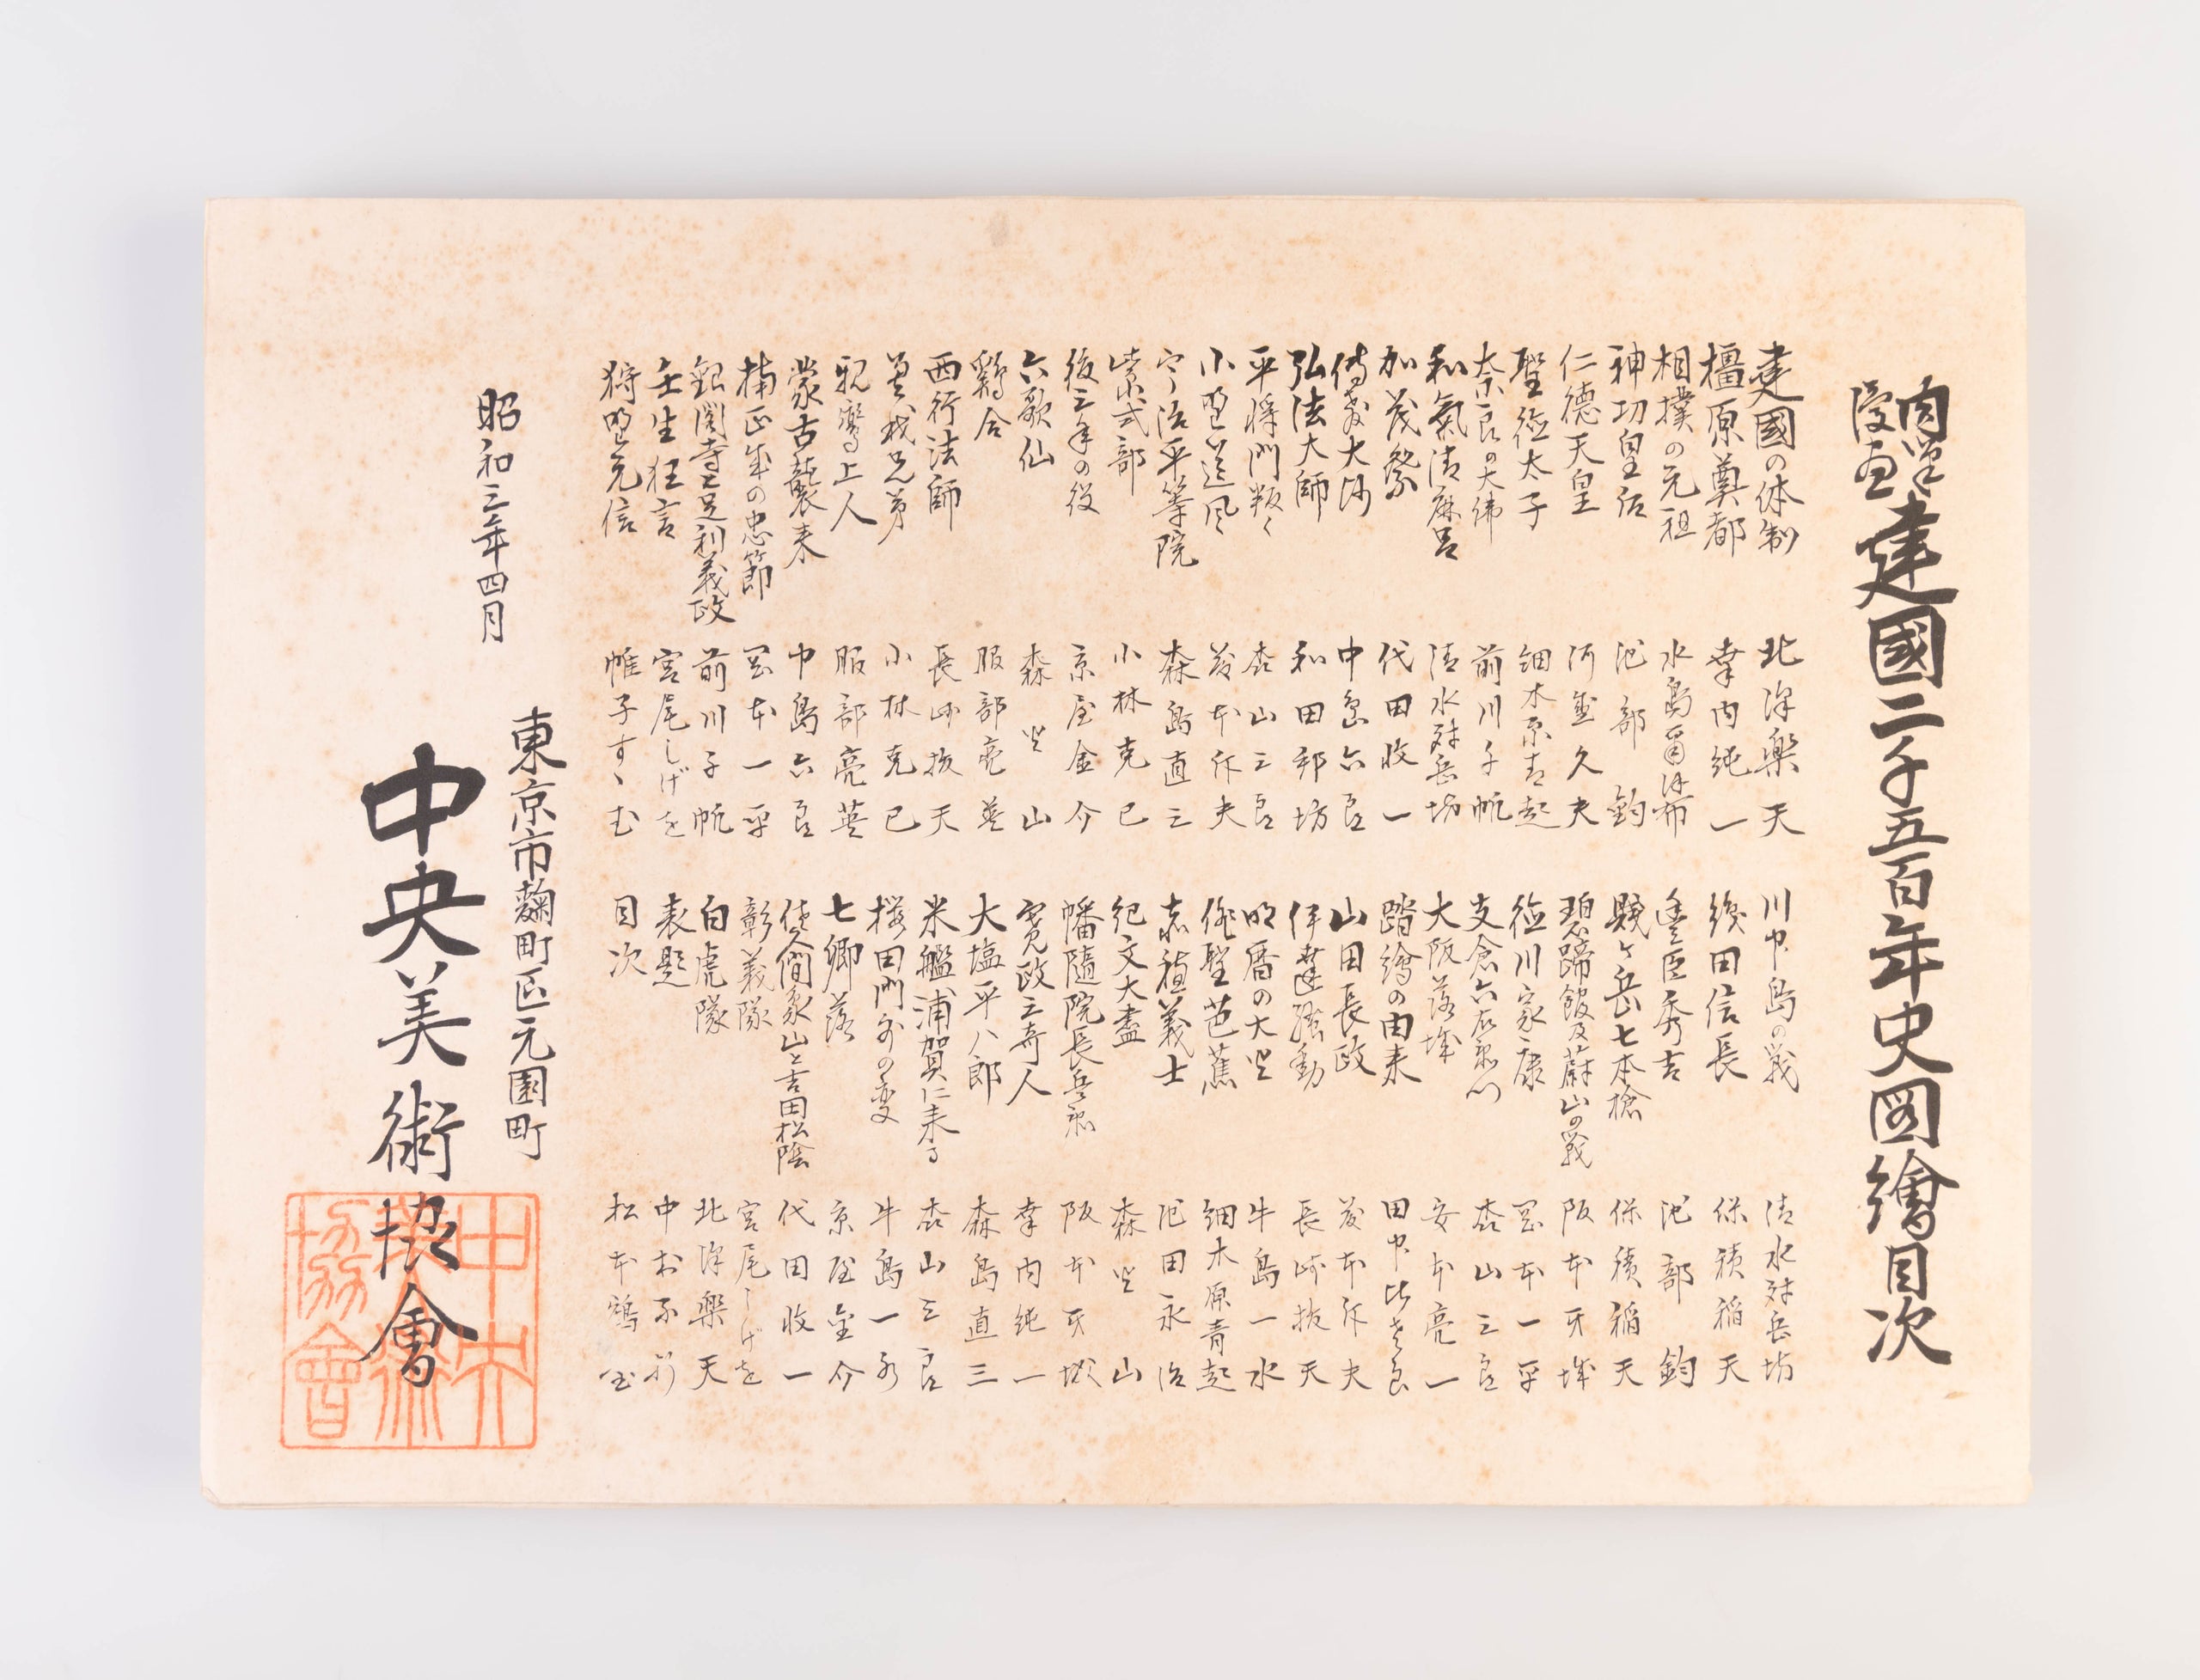 肉筆漫画 建國二千五百年史図繪目次
建國の体制 北澤楽天
橿原奠都 幸内純一
相撲の元祖 水島爾保布
神功皇后 池部鈞
仁徳天皇 河盛久夫
聖徳太子 細木原青起
奈良の大佛 前川千帆
和氣清麻呂 清水対岳坊
加茂祭 代田收一
傳教大師 中島六郎
弘法大師 和田邦坊
平将門叛く 森山三郎
小野道風 宍本斥夫
宇治平等院 森島直三
紫式部 小林克己
後三年の役 京屋金介
六歌仙 森火山
鷄合 服部亮英
西行法師 長崎抜天
曽我兄弟 小林克己
親鸞上人 服部亮英
蒙古襲来 中島六郎
楠正成の忠節 岡本一平
銀閣寺と足利義政 前川千帆
壬生狂言 宮尾しげを
狩野元信 帷子すゝむ
川中島の戦 清水対岳坊
織田信長 保積稲天
豊臣秀吉 池部鈞
賤ヶ岳七本槍 保積稲天
碧蹄館及蔚山の戦 阪本牙城
徳川家康 岡本一平
支倉六右衛門 森山三郎
大阪落城 安本亮一
踏繪の由来 田中比左良
山田長政
伊達騒動 長崎抜天
明暦の大火 牛島一水
俳聖芭蕉 細木原青起
赤穂義士 池田永治
紀文大盡 森火山
幡随院長兵衛 阪本牙城
寛政三奇人 幸内純一
大塩平八郎 森島直三
米艦浦賀に来る 森山三郎
桜田門外の変 牛島一水
七卿落 京屋金介
佐久間象山と吉田松陰 代田收一
彰義隊 宮尾しげを
白虎隊 北澤楽天
表題 中村不折
目次
昭和三年四月
東京市麹町区元園町
中央美術協會
中央美術協會